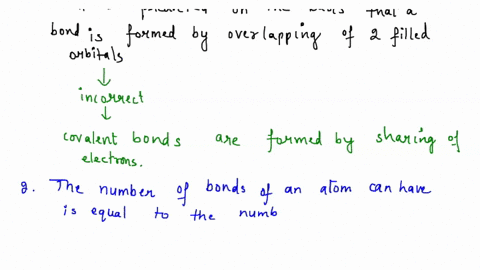 is predicted on the basis that a
bond is formed by overlapping of 2 filled
orbitals
incorrect
covalent bonds are formed by sharing of
electrons.
2. The number of bonds of an atom can have
is equal to the numb